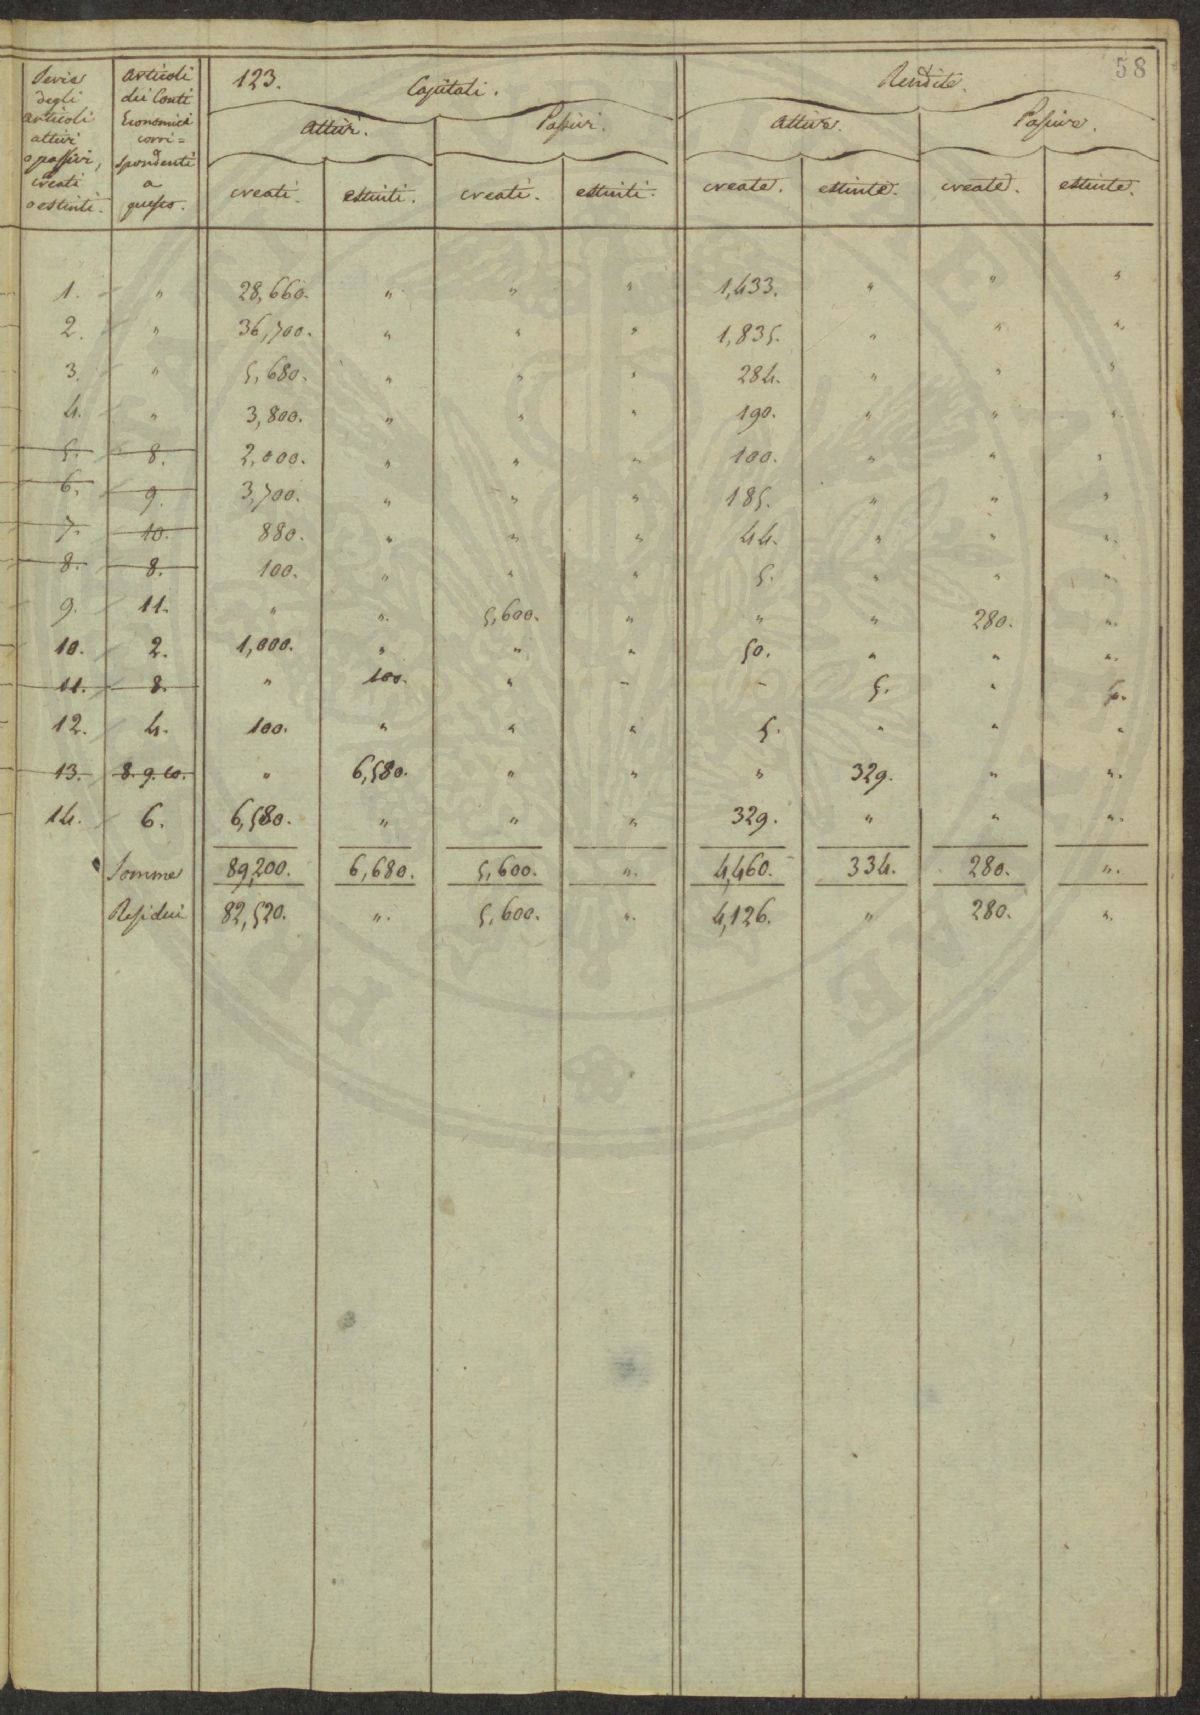 58
Serie degli articoli attivi o passivi, creati o estinti.
Articoli dei Conti Economici corri= spondenti a questo.
123. Capitali. Rendite.
Attivi. Passivi. Attive. Passive.
creati. estinti. creati. estinti. create. estinte. create. estinte.
1. " 28,660. " " " 1,433. " " "
2. " 36,700. " " " 1,835. " " "
3. " 5,680. " " " 284. " " "
4. " 3,800. " " " 190. " " "
5. 8. 2,000. " " " 100. " " "
6. 9. 3,700. " " " 185. " " "
7. 10. 880. " " " 44. " " "
8. 8. 100. " " " 5. " " "
9. 11. " " 5,600. " " " 280. "
10. 2. 1,000. " " " 50. " " "
11. 8. " 100. " – – 5. "
12. 4. 100. " " " 5. " " "
13. 8. 9. 10. " 6,580. " " " 329. " "
14. 6. 6,580. " " " 329. " " "
Somme 89,200. 6,680. 5,600. " 4,460. 334. 280. "
Residui 82,520. " 5,600. " 4,126. " 280. "